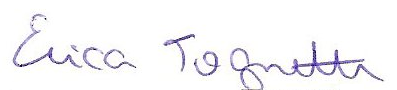 Erica Tognetti